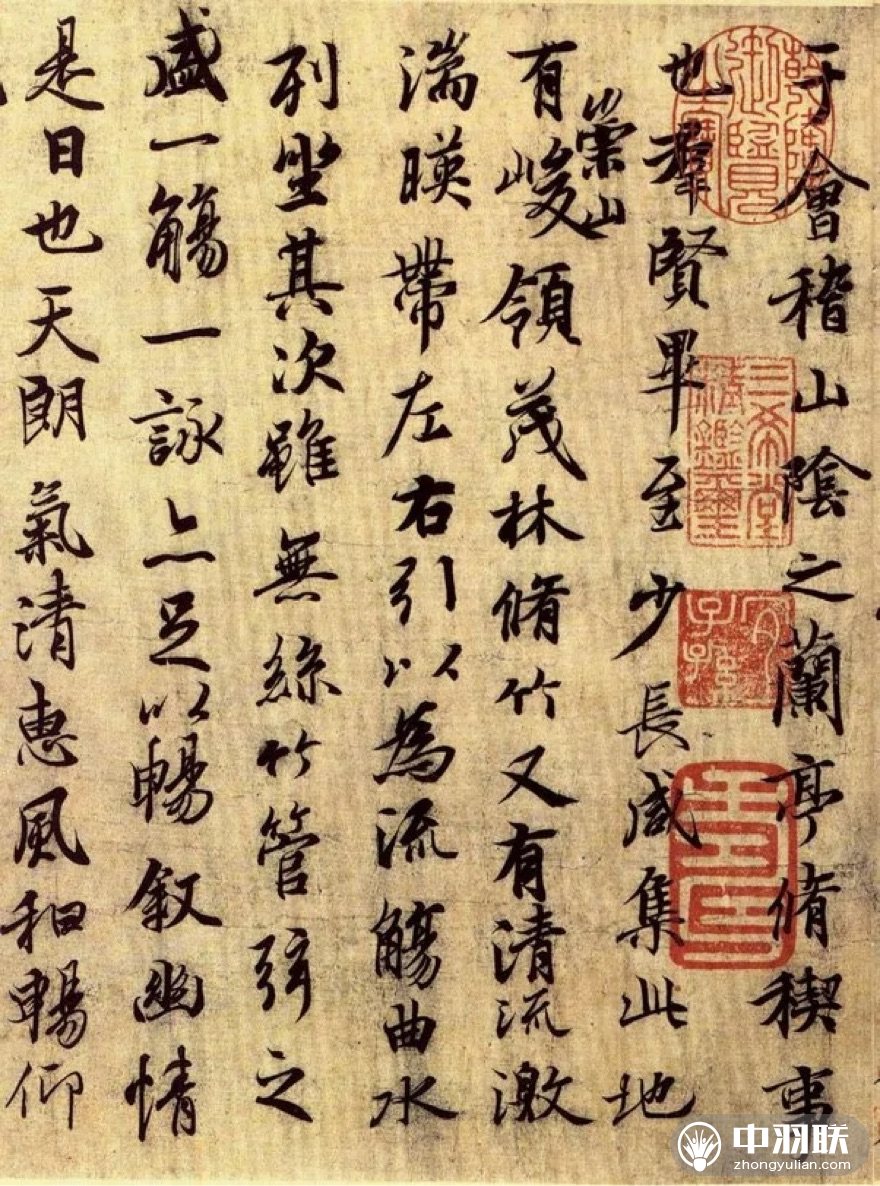 于會稽山陰之蘭亭脩稧事
也群賢畢至少長咸集此地
崇山
有峻領茂林脩竹又有清流激
湍暎帶左右引以為流觴曲水
列坐其次雖無絲竹管弦之
盛一觴一詠亦足以暢叙幽情
是日也天朗氣清惠風和暢仰
三希堂精鑑璽
中羽联
zhongyulian.com